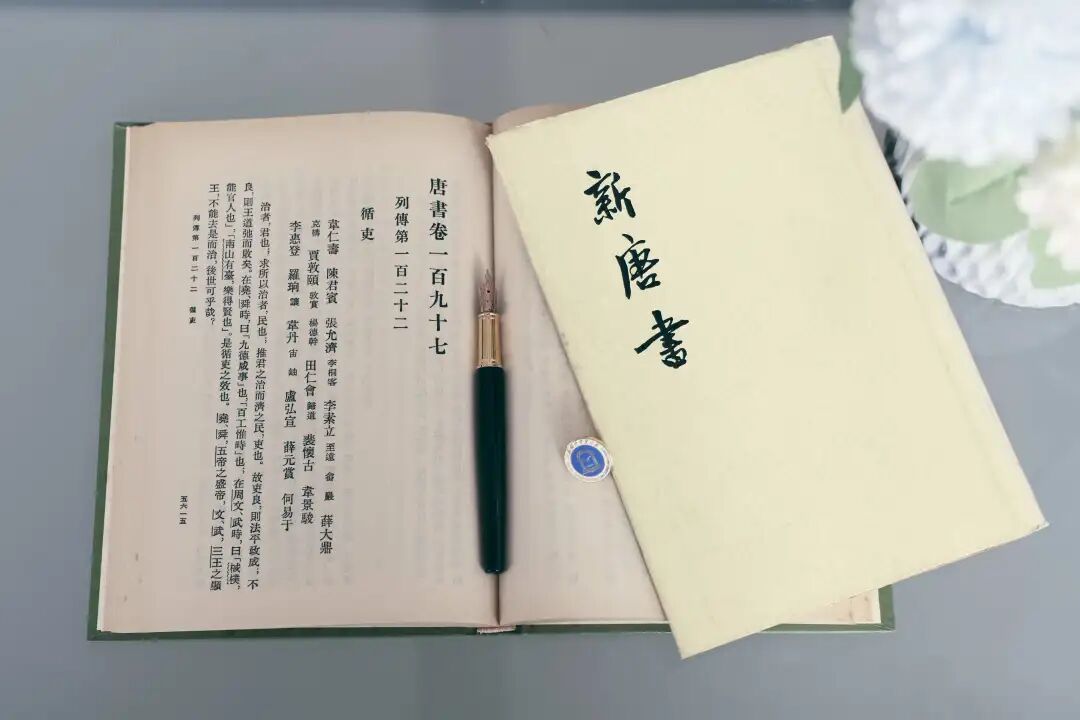 唐書卷一百九十七
列傳第一百二十二
循吏
韋仁壽 陳君賓 張允濟 李桐客 李素立 至遠 畬 巖 薛大鼎
克構 賈敦頤 敦實 楊德幹 田仁會 歸道 裴懷古 韋景駿
李惠登 羅珦 讓 韋丹 宙 岫 盧弘宣 薛元賞 何易于
治者,君也;求所以治者,民也;推君之治而濟之民,吏也。故吏良,則法平政成;不
良,則王道弛而敗矣。在堯、舜時,曰「九德咸事」也,「百工惟時」也;在周文、武時,曰「棫樸,
能官人也」,「南山有臺,樂得賢也」。是循吏之效也。堯、舜,五帝之盛帝,文、武,三王之顯
王,不能去是而治,後世可乎哉?
列傳第一百二十二 循吏
五六一五
新唐書